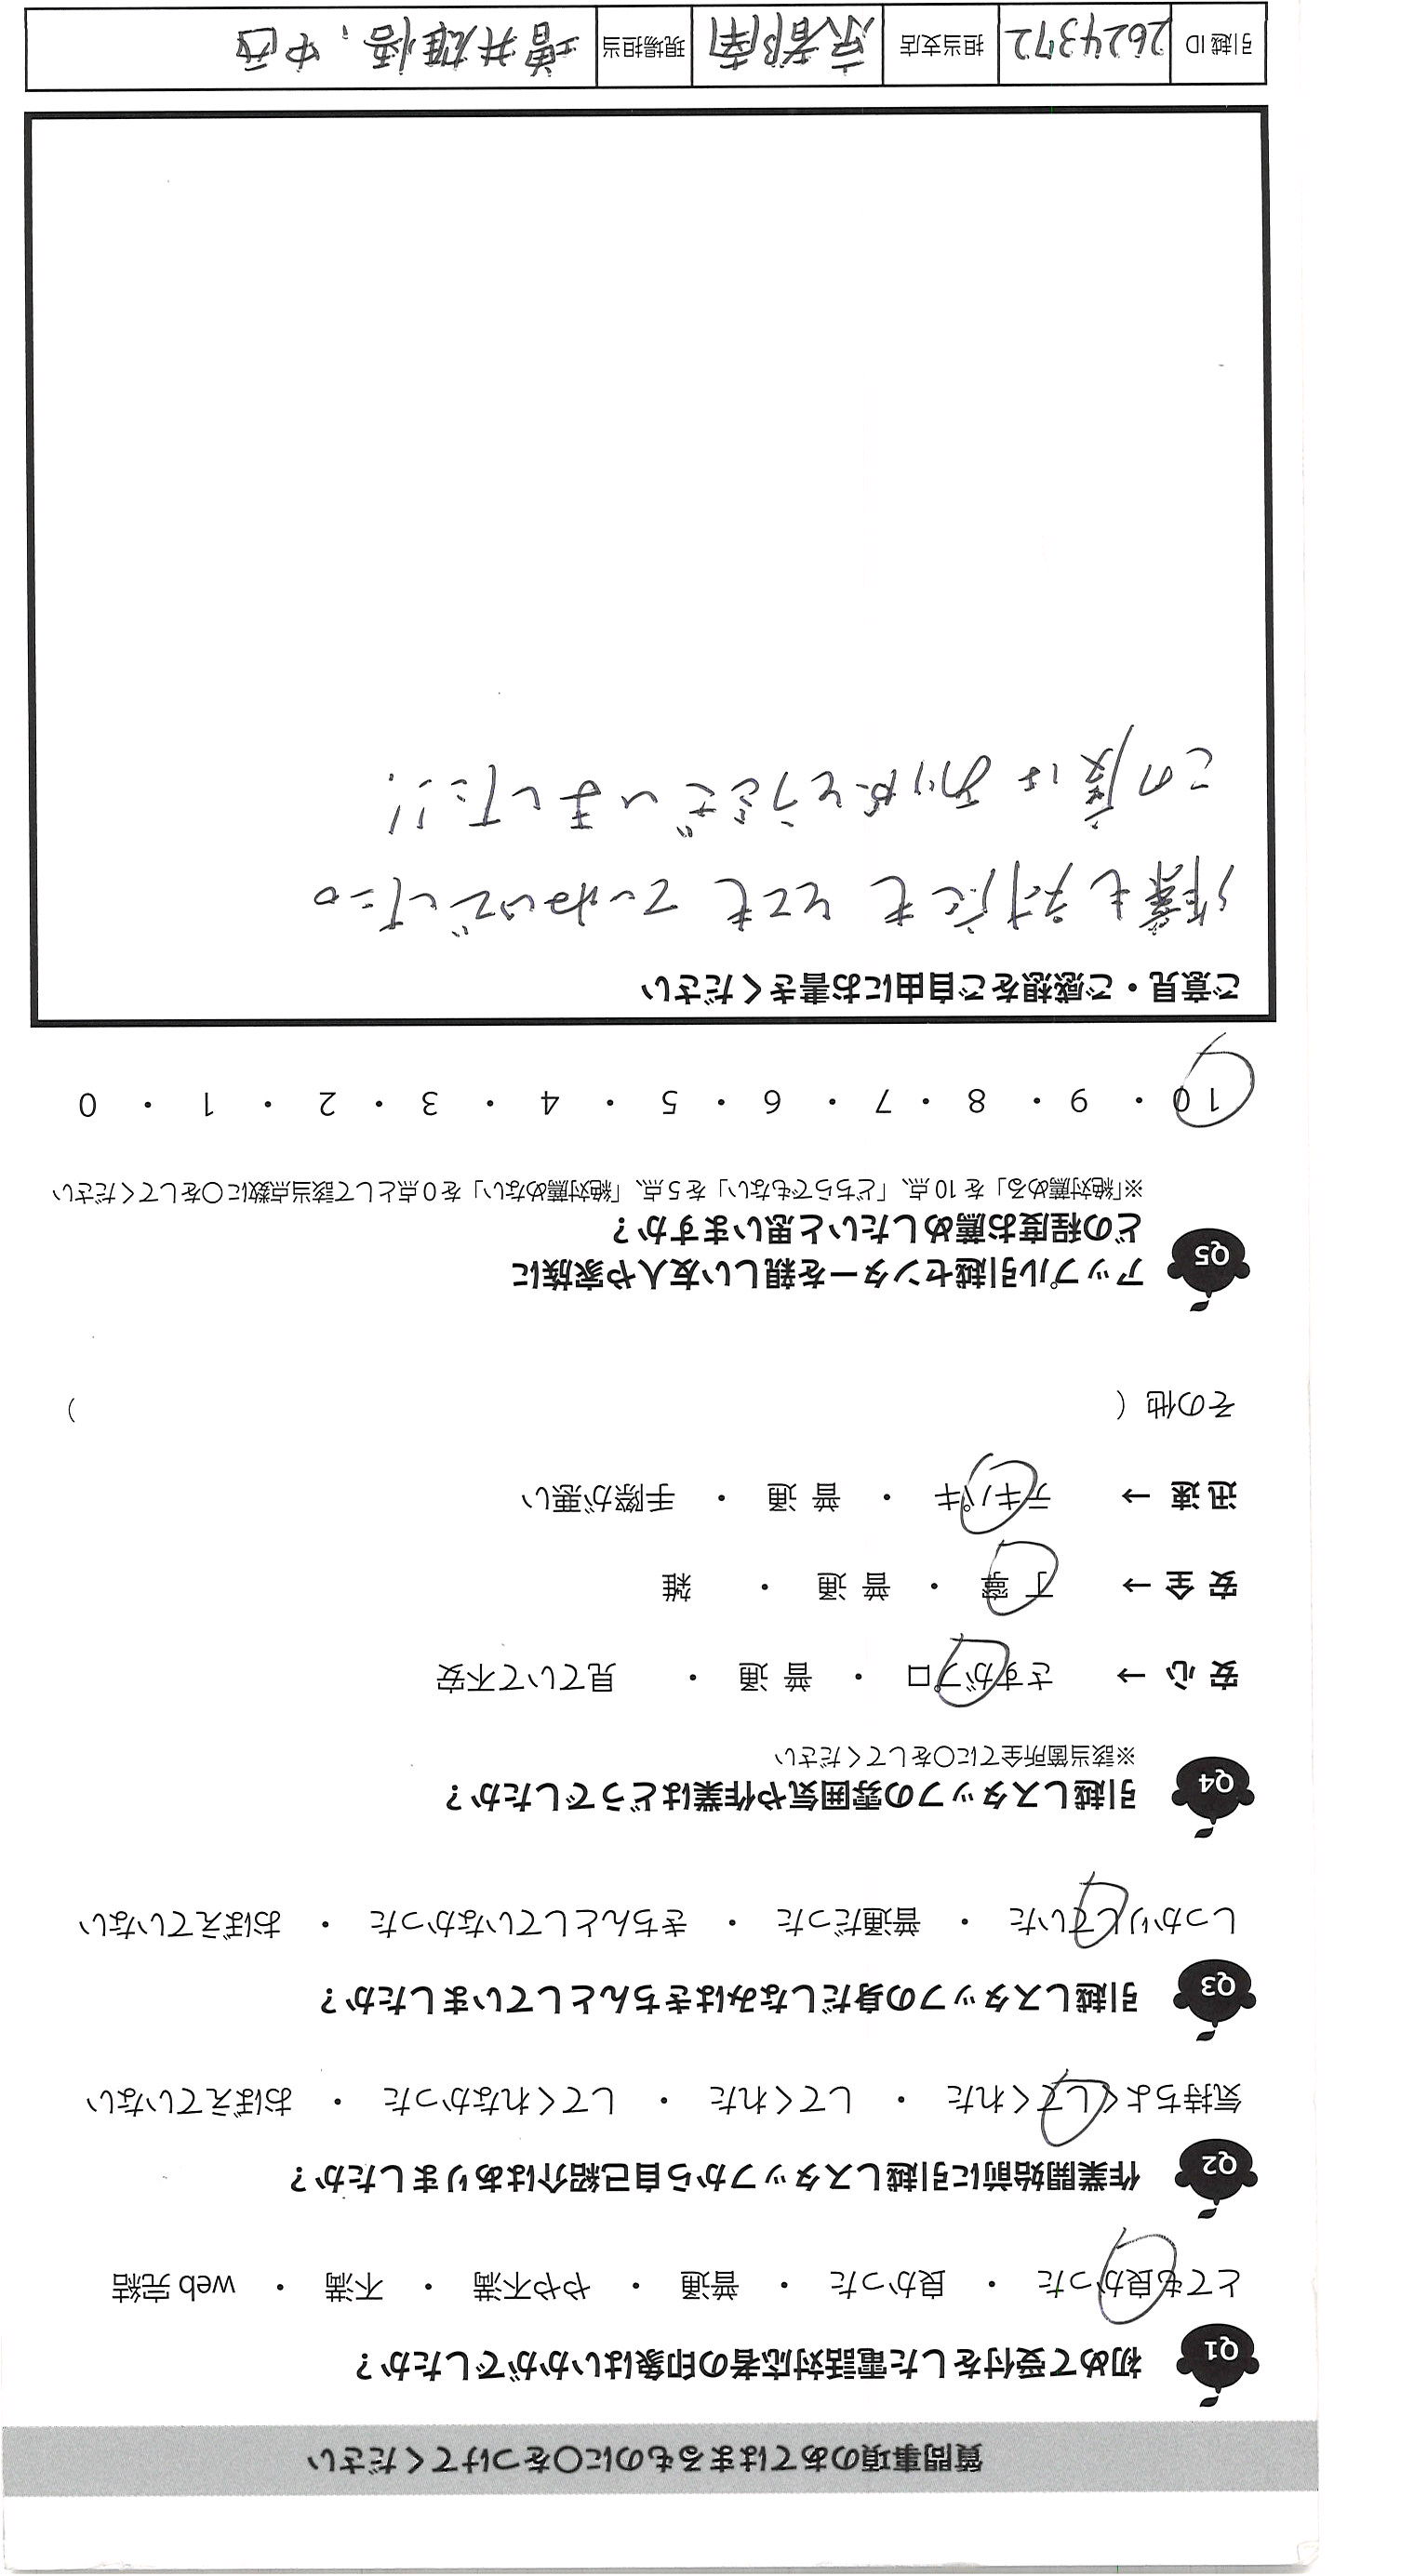 質問事項のあてはまるものに〇をつけてください
Q1 初めて受付をした電話対応者の印象はいかがでしたか？
とても良かった ・ 良かった ・ 普通 ・ やや不満 ・ 不満 ・ web 完結
Q2 作業開始前に引越しスタッフから自己紹介はありましたか？
気持ちよくしてくれた ・ してくれた ・ してくれなかった ・ おぼえていない
Q3 引越しスタッフの身だしなみはきちんとしていましたか？
しっかりしていた ・ 普通だった ・ きちんとしていなかった ・ おぼえていない
Q4 引越しスタッフの雰囲気や作業はどうでしたか？
※該当箇所全てに〇をしてください
安心→ さすがプロ ・ 普通 ・ 見ていて不安
安全→ 丁寧 ・ 普通 ・ 雑
迅速→ テキパキ ・ 普通 ・ 手際が悪い
その他（ ）
Q5 アップル引越センターを親しい友人や家族に
どの程度お薦めしたいと思いますか？
※「絶対薦める」を10点、「どちらでもない」を5点、「絶対薦めない」を0点として該当点数に〇をしてください
10 ・ 9 ・ 8 ・ 7 ・ 6 ・ 5 ・ 4 ・ 3 ・ 2 ・ 1 ・ 0
ご意見・ご感想をご自由にお書きください
作業も対応も とても ていねいでした。
この度は ありがとうございました!!
引越ID 2624372 担当支店 京都南 現場担当 増井雄悟、中西